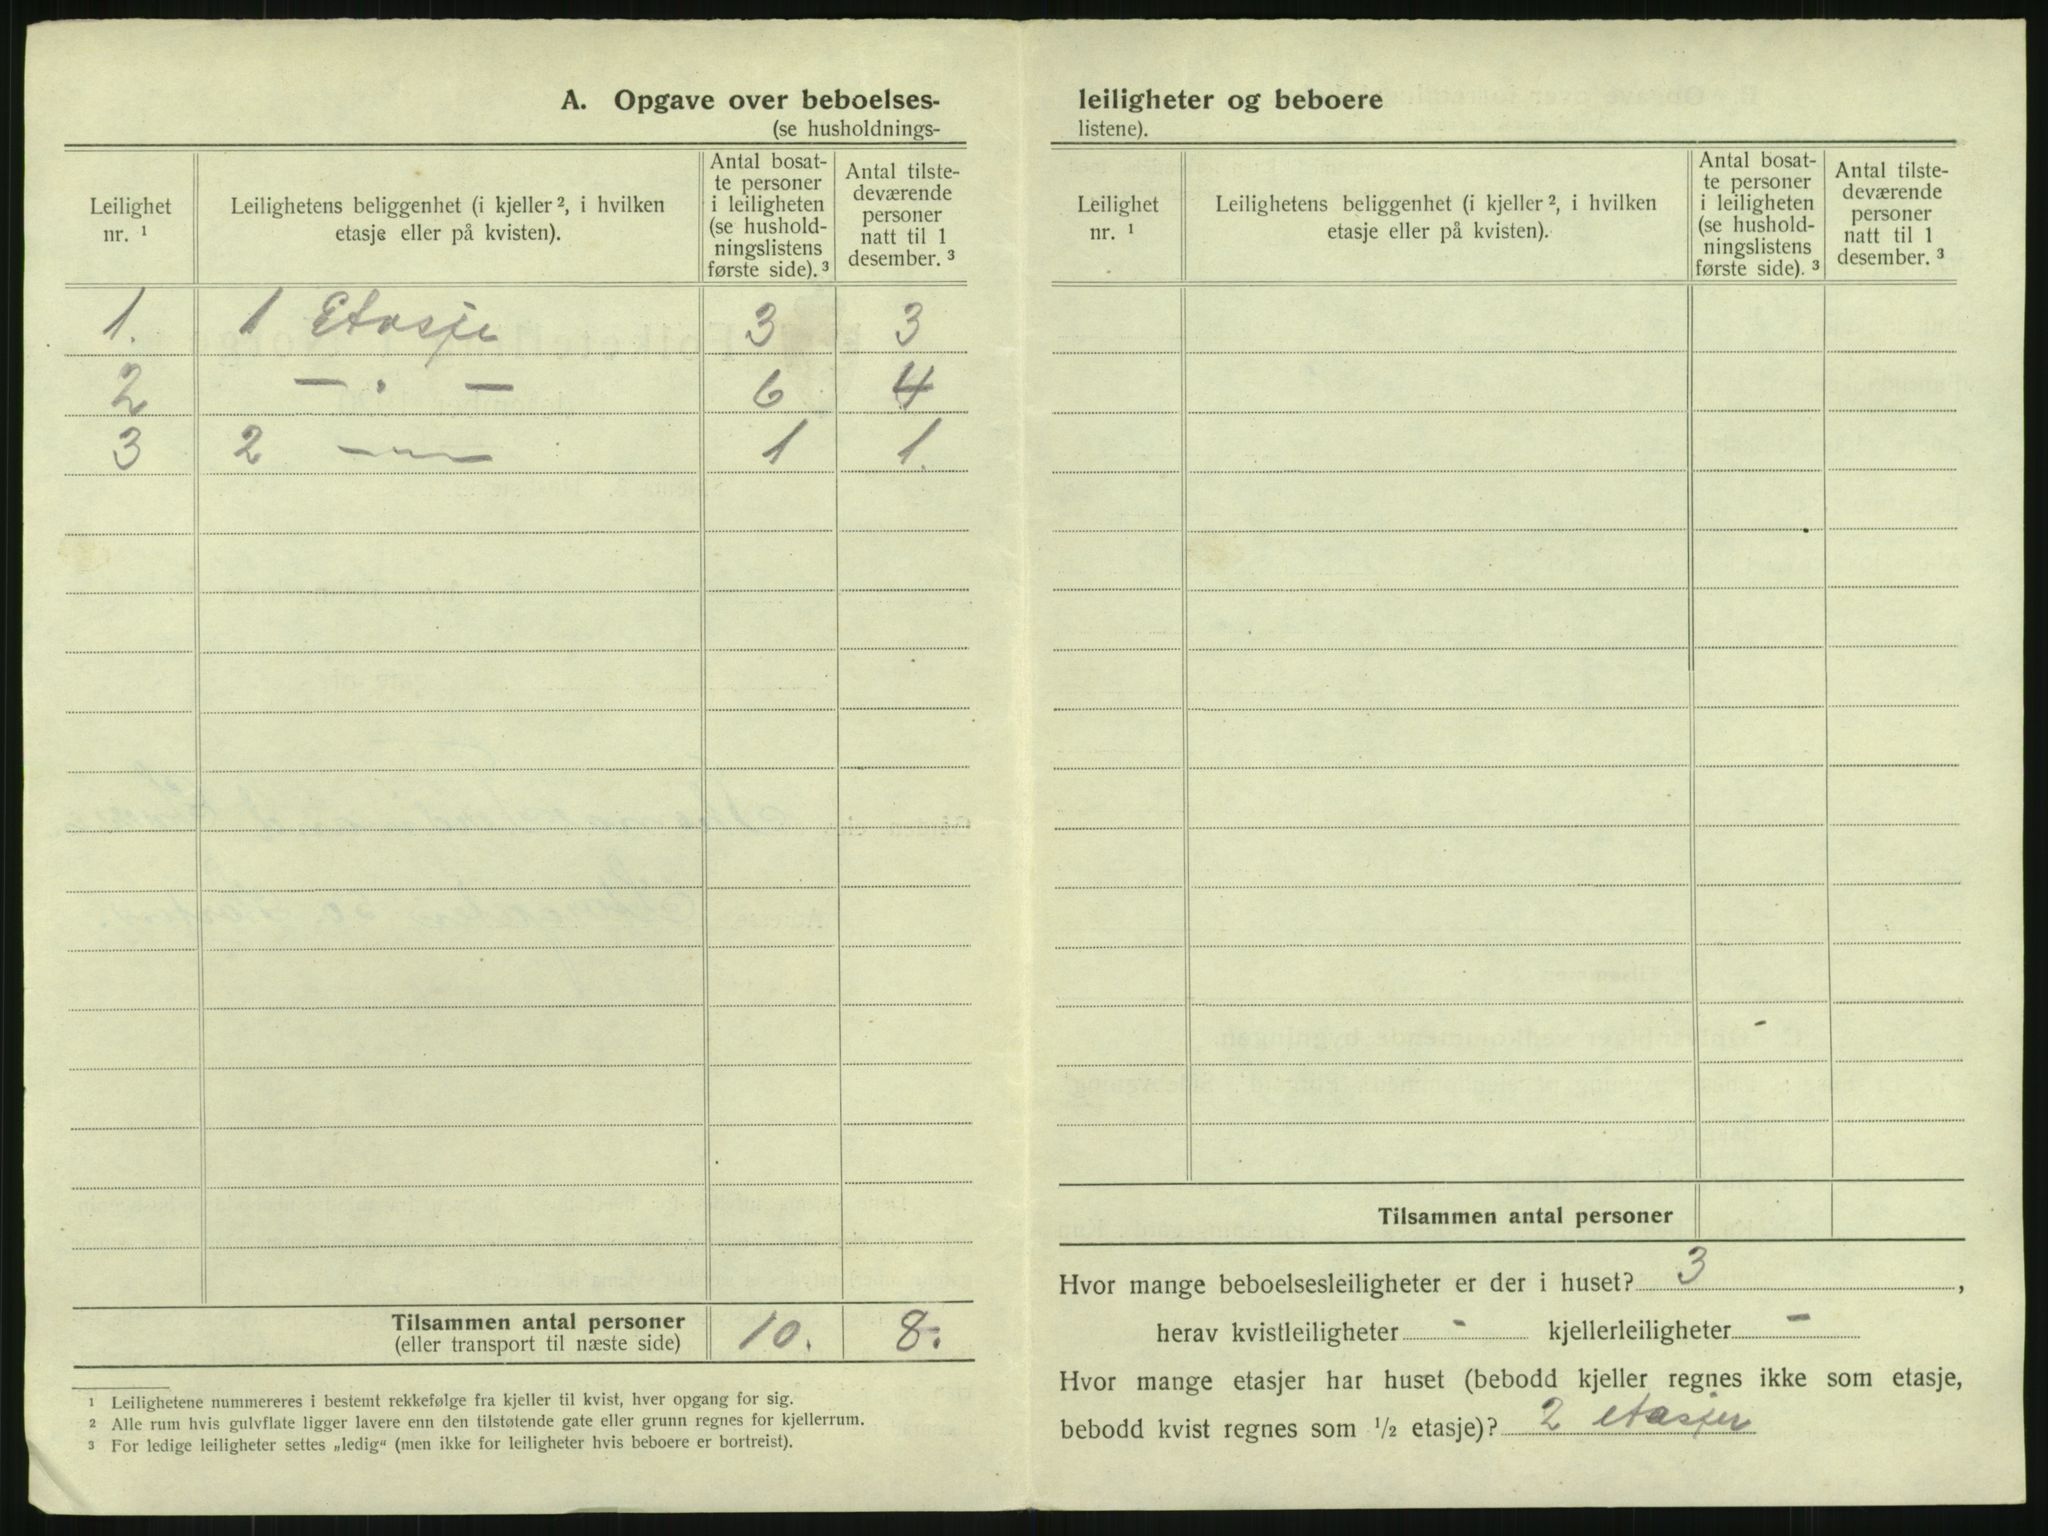 A. Opgave over beboelses-
(se husholdnings-
Leilighet nr. ¹
Leilighetens beliggenhet (i kjeller ², i hvilken etasje eller på kvisten).
Antal bosatte personer i leiligheten (se husholdningslistens første side). ³
Antal tilstedeværende personer natt til 1 desember. ³
1. 1 Etasje 3 3
2 — . — 6 4
3 2 — „ — 1 1.
Tilsammen antal personer
(eller transport til næste side) 10. 8.
¹ Leilighetene nummereres i bestemt rekkefølge fra kjeller til kvist, hver opgang for sig.
² Alle rum hvis gulvflate ligger lavere enn den tilstøtende gate eller grunn regnes for kjellerrum.
³ For ledige leiligheter settes „ledig“ (men ikke for leiligheter hvis beboere er bortreist).
leiligheter og beboere
listene).
Leilighet nr. ¹
Leilighetens beliggenhet (i kjeller ², i hvilken etasje eller på kvisten).
Antal bosatte personer i leiligheten (se husholdningslistens første side). ³
Antal tilstedeværende personer natt til 1 desember. ³
Tilsammen antal personer
Hvor mange beboelsesleiligheter er der i huset? 3,
herav kvistleiligheter - kjellerleiligheter -
Hvor mange etasjer har huset (bebodd kjeller regnes ikke som etasje,
bebodd kvist regnes som ½ etasje)? 2 etasjer